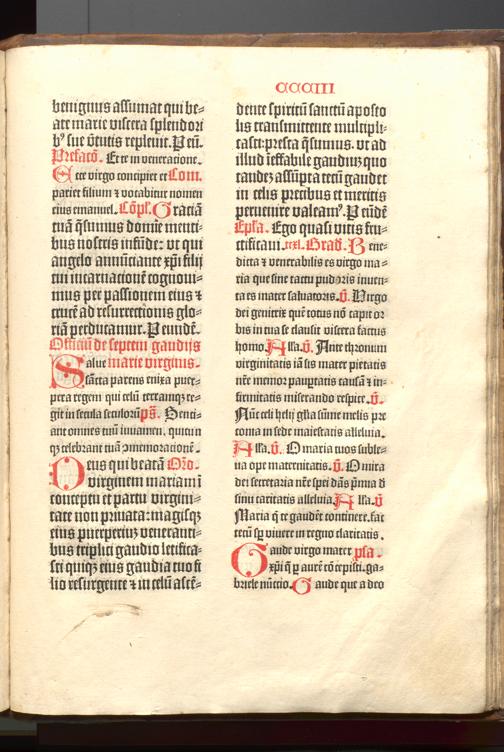 CCCIII
benignius assumat qui be⸗
ate marie viscera splendori
bꝰ sue v̄tutis repleuit. P eū.
Prefacō. Et te in veneratione.
E cce virgo concipiet et Com.
pariet filium ⁊ vocabitur nomen
eius emanuel. Cōpl. G ratiā
tuā q̄sumus domīe menti⸗
bus nostris infūde: vt qui
angelo annūciante xp̄i filij
tui incarnationē cognoui⸗
mus per passionem eius ⁊
crucē ad resurrectionis glo⸗
riā perducamur. P eundē.
Officiū de septem gaudijs
S alue marie virginis.
sācta parens enixa puer⸗
pera regem qui celū terramqꝫ re⸗
git in secula seculorū pˢ. S enti⸗
ant omnes tuū iuuamen. quicūn
qꝫ celebrant tuā ɔmemorationē.
D eus qui beatā Orō.
virginem mariam ī
conceptu et partu virgini⸗
tate non priuata: magisqꝫ
eius puerperiuꝫ veneranti⸗
bus triplici gaudio letifica⸗
sti quiqꝫ eius gaudia tuo fi
lio resurgente ⁊ in celū ascē⸗
dente spiritū sanctū aposto
lis transmittente multipli⸗
casti: presta q̄sumus. vt ad
illud īeffabile gaudiuꝫ quo
tandeꝫ assūpta tecū gaudet
in celis precibus et meritis
peruenire valeamꝰ. P eūdē
Epl̄a. Ego quasi vitis fru⸗
ctificaui. rexl. Grad. B ene⸗
dicta ⁊ venerabilis es virgo ma⸗
ria que sine tactu pudoris inuen⸗
ta es mater saluatoris. v̄. Virgo
dei genitrix quē totus nō capit or
bis in tua se clausit viscera factus
homo. A lla. v̄. Ante thronum
virginitatis iā sis mater pietatis
nr̄e memor pauptatis causā ⁊ in⸗
firmitatis miserando respice. v̄.
Aue celi helij gl̄ia sume melis pre
conia in sede maiestatis alleluia.
A lla. v̄. O maria tuos suble⸗
ua ope maternitatis. v̄. O mica
dei secretaria nr̄e spei dās p̄mia d
sinu caritatis alleluia. A lla. v̄
Maria q̄ te gaudēt continere. fac
tecū sp̄ viuere in regno claritatis.
G aude virgo mater psa.
xp̄i q̄ p̱ aurē cōcepisti. ga⸗
briele nūctio. G aude que a deo